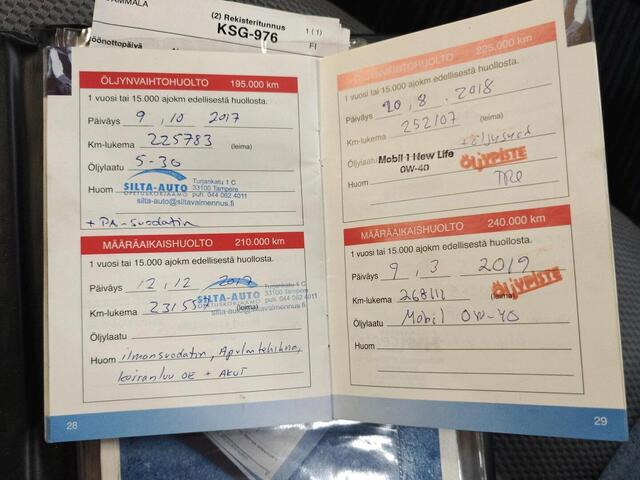 (2) Rekisteritunnus
KSG-976
1 (1)
FI
ÖLJYNVAIHTOHUOLTO 195.000 km
1 vuosi tai 15.000 ajokm edellisestä huollosta.
Päiväys 9 , 10 2017
Km-lukema 225783 (leima)
Öljylaatu 5-30
Huom
SILTA-AUTO
OPETUSKORJAAMO
Turjankatu 1 C
33100 Tampere
puh. 044 062 4011
silta-auto@siltavalmennus.fi
+ PA-suodatin
MÄÄRÄAIKAISHUOLTO 210.000 km
1 vuosi tai 15.000 ajokm edellisestä huollosta.
Päiväys 12 , 12 2017
Km-lukema (leima)
SILTA-AUTO
OPETUSKORJAAMO
33100 Tampere
puh. 044 062 4011
Öljylaatu
Huom ilmansuodatin,
+ AKUT
28
ÖLJYNVAIHTOHUOLTO 225.000 km
1 vuosi tai 15.000 ajokm edellisestä huollosta.
Päiväys 20 , 8 . 2018
Km-lukema 252107 (leima)
Öljylaatu Mobil 1 New Life
0W-40
ÖLJYPISTE
Huom
MÄÄRÄAIKAISHUOLTO 240.000 km
1 vuosi tai 15.000 ajokm edellisestä huollosta.
Päiväys 9 , 3 2019
Km-lukema (leima)
ÖLJYPISTE
Öljylaatu Mobil 0W-40
Huom
29